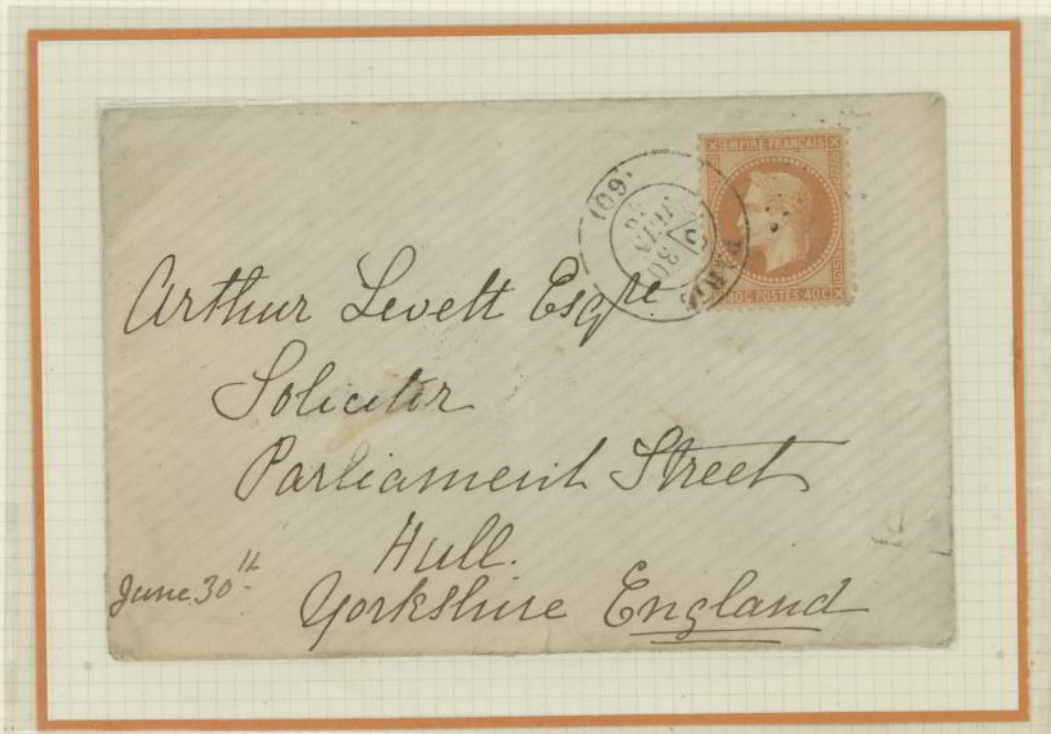 EMPIRE FRANÇAIS
40C POSTES 40C
PARIS
(60)
30
JUIN
Arthur Levett Esqre
Solicitor
Parliament Street
Hull.
Yorkshire England
June 30th